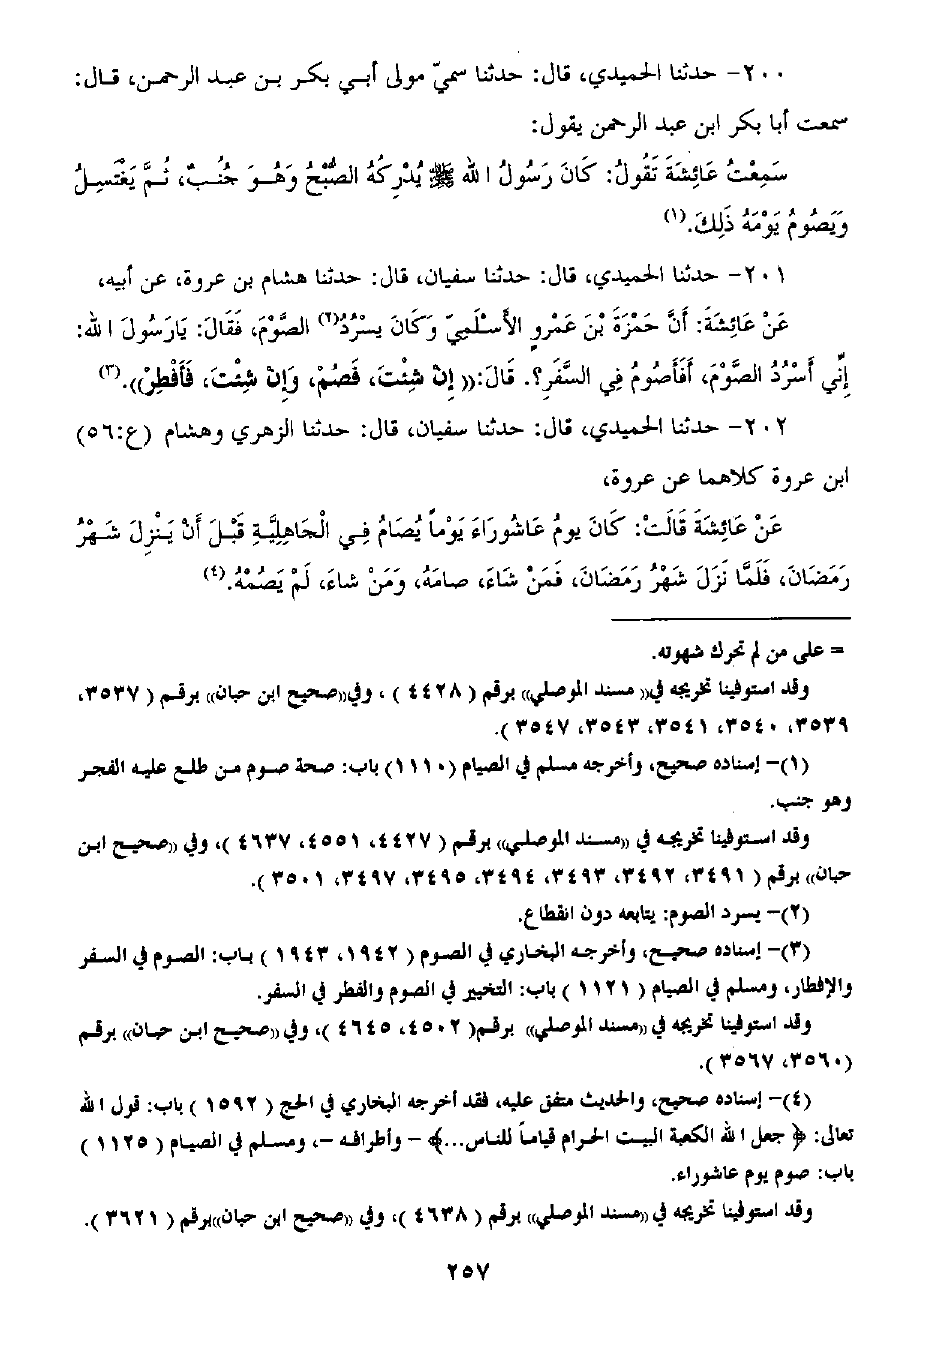 ٢٠٠- حدثنا الحميدي، قال: حدثنا سميّ مولى أبي بكر بن عبد الرحمن، قال:
سمعت أبا بكر ابن عبد الرحمن يقول:
سَمِعْتُ عَائِشَةَ تَقُولُ: كَانَ رَسُولُ الله ﷺ يُدْرِكُهُ الصُّبْحُ وَهُوَ جُنُبٌ، ثُمَّ يَغْتَسِلُ
وَيَصُومُ يَوْمَهُ ذَلِكَ.(١)
٢٠١- حدثنا الحميدي، قال: حدثنا سفيان، قال: حدثنا هشام بن عروة، عن أبيه،
عَنْ عَائِشَةَ: أَنَّ حَمْزَةَ بْنَ عَمْرٍو الأَسْلَمِيّ وَكَانَ يسْرُدُ(٢) الصَّوْمَ، فَقَالَ: يَارَسُولَ الله:
إِنِّي أَسْرُدُ الصَّوْمَ، أَفَأَصُومُ فِي السَّفَرِ؟. قَالَ:(( إِنْ شِئْتَ، فَصُمْ، وَإِنْ شِئْتَ، فَأَفْطِرْ)).(٣)
٢٠٢- حدثنا الحميدي، قال: حدثنا سفيان، قال: حدثنا الزهري وهشام (ع:٥٦)
ابن عروة كلاهما عن عروة،
عَنْ عَائِشَةَ قَالَتْ: كَانَ يومُ عَاشُورَاءَ يَوْماً يُصَامُ فِي الْجَاهِلِيَّةِ قَبْلَ أَنْ يَنْزِلَ شَهْرُ
رَمَضَانَ، فَلَمَّا نَزَلَ شَهْرُ رَمَضَانَ، فَمَنْ شَاءَ، صامَهُ، وَمَنْ شاءَ، لَمْ يَصُمْهُ.(٤)
= على من لم تحرك شهوته.
وقد استوفينا تخريجه في(( مسند الموصلي)) برقم ( ٤٤٢٨ ) ، وفي((صحيح ابن حبان)) برقم ( ٣٥٣٧،
٣٥٣٩، ٣٥٤٠، ٣٥٤١، ٣٥٤٣، ٣٥٤٧ ).
(١)- إسناده صحيح، وأخرجه مسلم في الصيام (١١١٠) باب: صحة صوم من طلع عليه الفجر
وهو جنب.
وقد استوفينا تخريجه في ((مسند الموصلي)) برقم ( ٤٤٢٧، ٤٥٥١، ٤٦٣٧ )، وفي ((صحيح ابن
حبان)) برقم ( ٣٤٩١، ٣٤٩٢، ٣٤٩٣، ٣٤٩٤، ٣٤٩٥، ٣٤٩٧، ٣٥٠١ ).
(٢)- يسرد الصوم: يتابعه دون انقطاع.
(٣)- إسناده صحيح، وأخرجه البخاري في الصوم ( ١٩٤٢، ١٩٤٣ ) باب: الصوم في السفر
والإفطار، ومسلم في الصيام ( ١١٢١ ) باب: التخيير في الصوم والفطر في السفر.
وقد استوفينا تخريجه في ((مسند الموصلي)) برقم( ٤٥٠٢، ٤٦٤٥ )، وفي ((صحيح ابن حبان)) برقم
(٣٥٦٠، ٣٥٦٧ ).
(٤)- إسناده صحيح، والحديث متفق عليه، فقد أخرجه البخاري في الحج ( ١٥٩٢ ) باب: قول الله
تعالى: ﴿ جعل الله الكعبة البيت الحرام قياماً للناس...﴾ - وأطرافه -، ومسلم في الصيام ( ١١٢٥ )
باب: صوم يوم عاشوراء.
وقد استوفينا تخريجه في ((مسند الموصلي)) برقم ( ٤٦٣٨ )، وفي ((صحيح ابن حبان))برقم ( ٣٦٢١ ).
٢٥٧